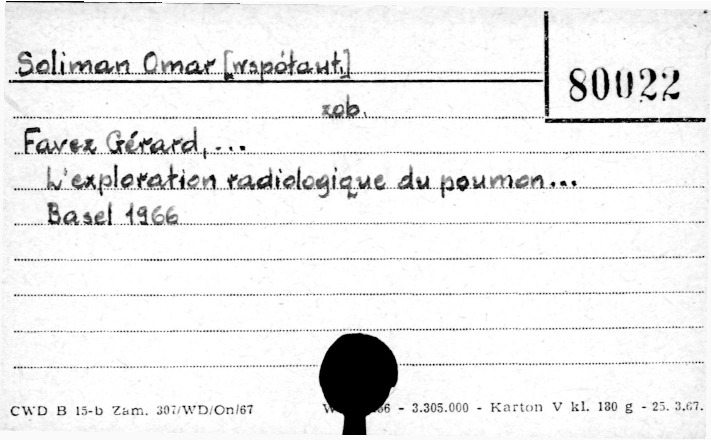 Soliman Omar [współaut.]
80022
zob.
Favez Gérard, ...
L'exploration radiologique du poumon...
Basel 1966
CWD B 15-b Zam. 307/WD/On/67 66 - 3.305.000 - Karton V kl. 180 g - 25. 3.67.